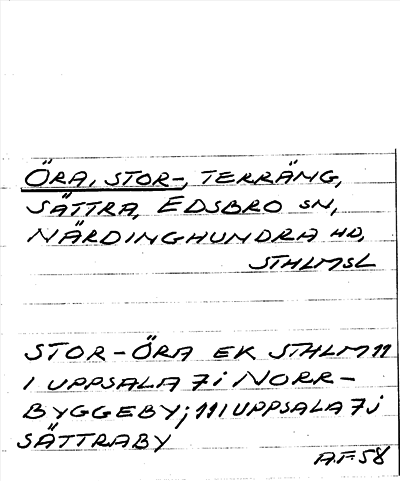 ÖRA, STOR-, TERRÄNG,
SÄTTRA, EDSBRO SN,
NÄRDINGHUNDRA HD,
STHLMSL
STOR-ÖRA EK STHLM 11
1 UPPSALA 7 i NORR-
BYGGEBY; 111 UPPSALA 7 i
SÄTTRABY
A.F. 58